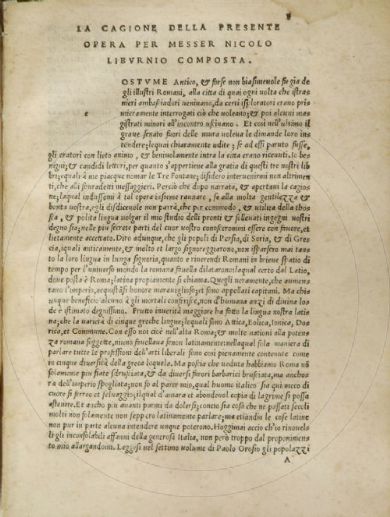 LA CAGIONE DELLA PRESENTE
OPERA PER MESSER NICOLO
LIBVRNIO COMPOSTA.
OSTVME Antico, & forse non biasimevole fu gia de
gli illustri Romani, alla citta di quai ogni volta che stra
nieri ambasciadori veniuano, da certi
nieramente interrogati ciò che voleano; & poi alcuni mae
strati minori all'incontro Et così nell'ultimo il
graue senato fuori delle mura voleua le dimande loro in
tendere; lequai chiaramente udite; se ad essi paruto fusse,
gli oratori con lieto animo, & beniuolamente intra la citta erano riceuuti. Io be
nigni, & candidi lettori, per quanto s'appertiene alla gratia di questi tre nostri libri
bri; equali à me piacque nomar le Tre Fontane; disidero interuenirni non altrimen
ti, che alli sonradetti messaggieri. Perciò che dipo narrata, & apertaui la cagio
ne; laqual indussemi à tal opera insieme raunare, se alla molta gentilezza &
bontà nostra, egli disdiceuole non parrà, che per commodo, & utilità della thos
ca, & polita lingua volgar il mio studio delli pronti & solleuati ingegni nostri
degno sie; nelle piu secrete parti del cuor vostro conseruerommi essere con fauore, et
lietamente accettato. Dito adunque, che gli popoli di Persia, di Soria, & di Gre
cia, quali anticamente, & molto et largo signoreggiatono, non isparsero mai tan
to la lor lingua in lunga signoria, quanto e riuerendi Romani in brieue spatio di
tempo per l'uniuerso mondo la romana fauella dilatarono: laqual certo dal Latio,
doue posta è Roma; latina propiamente si chiama. Quegli ueramente, che aumen
tano l'imperio, equistàsi honore merauiglioso; et sono appellati capitani. Ma chiun
que beneficio alcuno à gli mortali confirisce, non d'humana anzi di diuina lo
de è istimato degnissimo. Frutto inuerità maggiore ha fatto la lingua nostra lati
na; che la uarietà di cinque greche lingue; lequali sono Attica, Eolica, Ionica, Do
rica, et Commune. Con ciò sia cosa che nell'alta Roma; & molte nationi alla poten
za romana soggette, niuni fauellaua senon latinamente: nellaqual sola maniera di
parlare tutte le professioni dell'arti liberali sono così pienamente contenute come
in cinque diuersità della greca loquela. Ma posciа che ueduta habbiamo Roma nō
solamente piu fiate sdrugita, & da diuersi furori barbarici brusciata, ma anchо
ra dell'imperio spogliata; non so al parer mio, qual huomo italico sia qui unco di
cuore si ferreo et seluaggio; ilqual d'amara et abondeuol copia di lagrime si possa
astenere. Et archo piu ananti parmi da dolersi; concio sia cosa che ne passati secoli
molti non solamente non seppero latinamente parlare; ma etiandio le cose latine
non pur in parte alcuna intendere unque poterono. Hoggimai accio ch'io rinouelo
li gli inconsolabili affanni della generosa Italia, non però troppo dal proponimento
mio allargandomi. Leggesi nel settimo volume di Paolo Orosio gli popolazzi
A